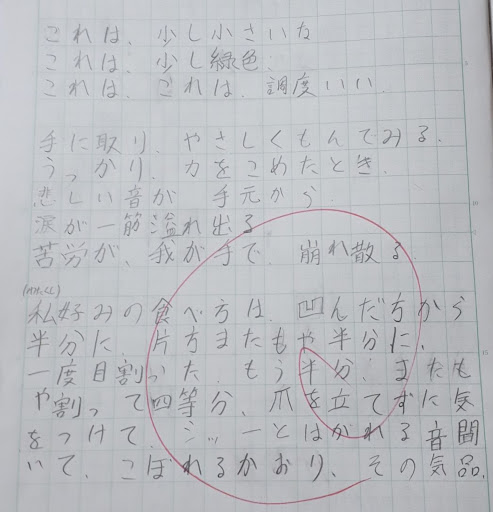 これは、少し小さいな
これは、少し緑色
これは、これは、調度いい.
手に取り、やさしくもんてみる.
うっかり、力をこめたとき、
悲しい音が 手元から
涙が一筋溢れ出る
苦労が、我が手で、崩れ散る
私好みの食べ方は、凹んだ方から
半分に、片方またもや半分に、
一度目割った、もう半分、またも
や割って四等分、爪を立てずに気
をつけて、シッーとはがれる音聞
いて、こぼれるかおり、その気品.